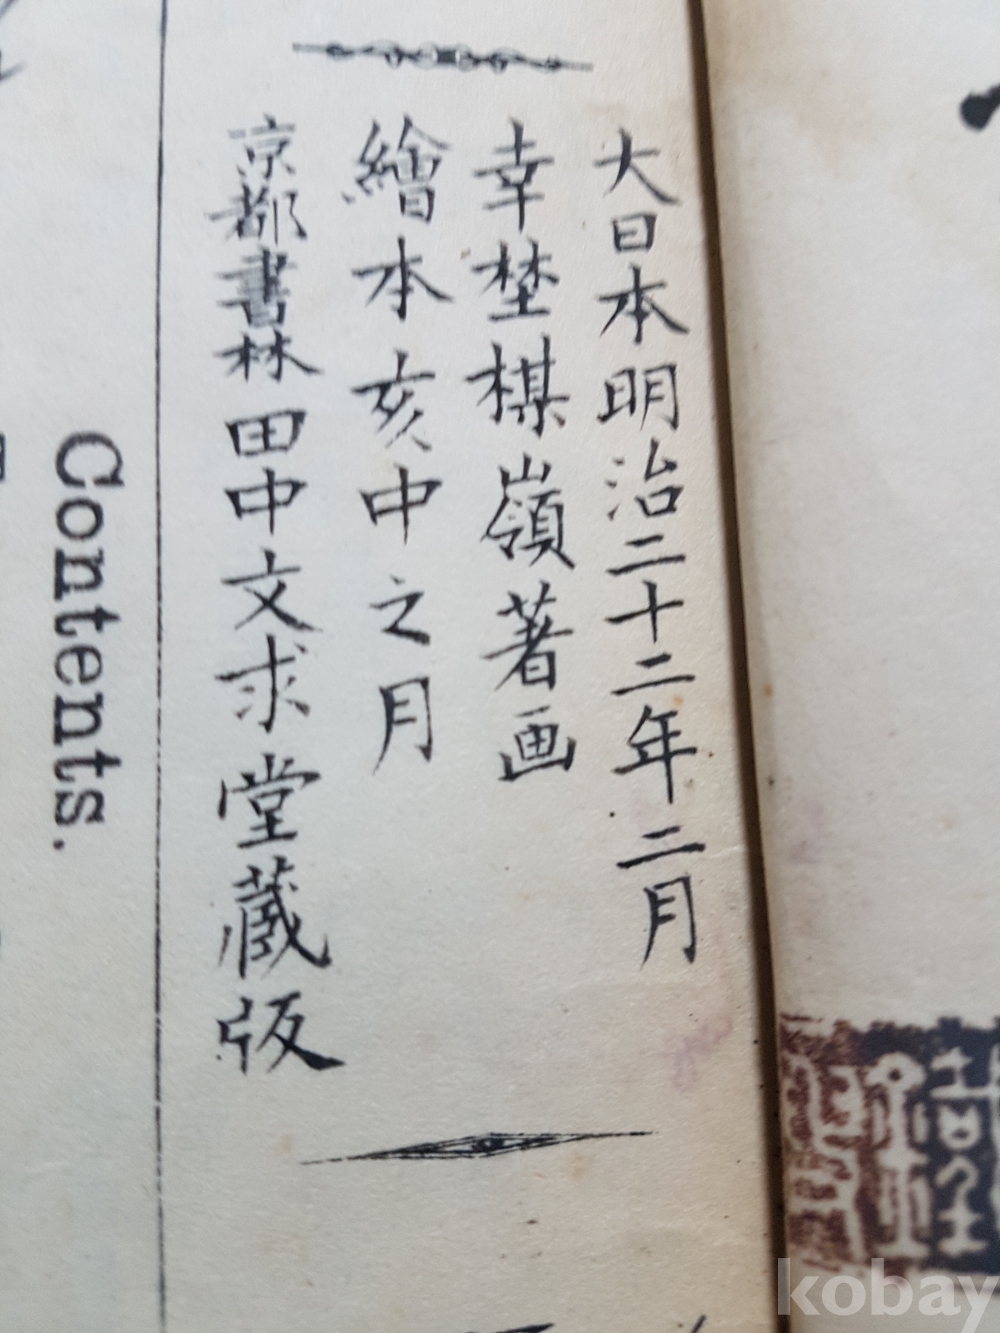 大日本明治二十二年二月
幸埜楳嶺著画
繪本亥中之月
京都書林田中文求堂蔵版
Contents.
kobay